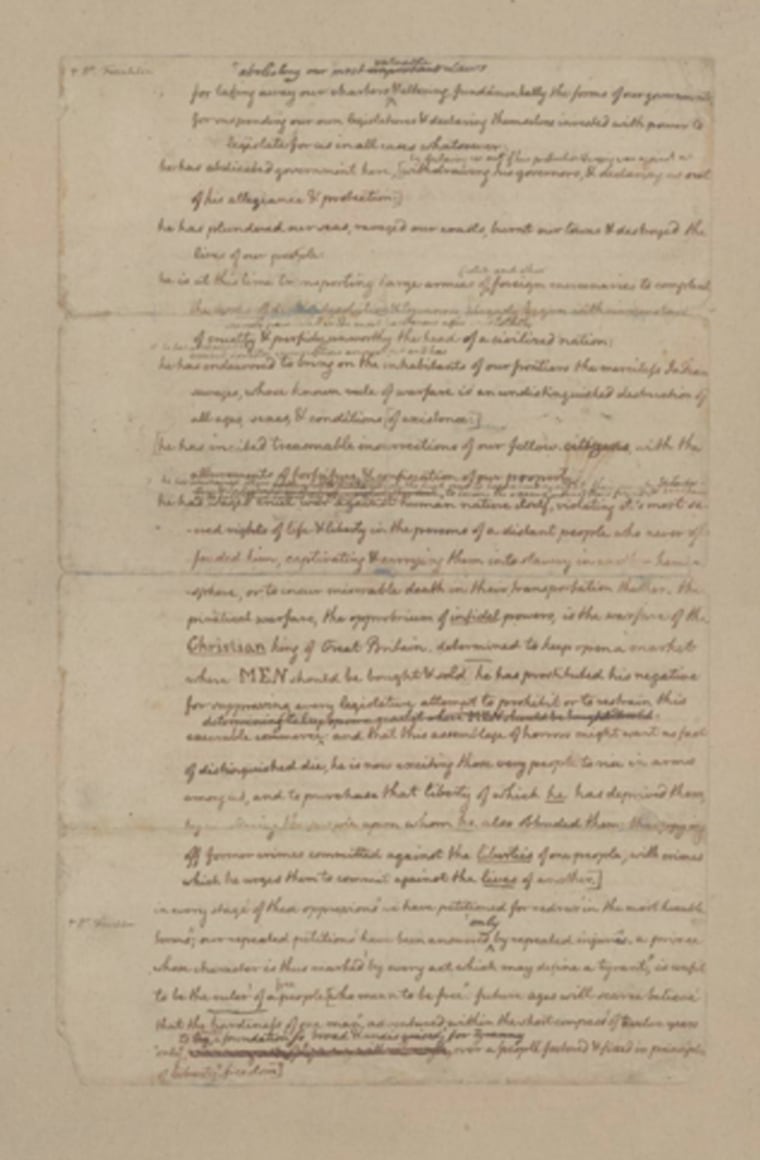 + Dr. Franklin
abolishing our most important valuable laws
for taking away our charters & altering fundamentally the forms of our governments
for suspending our own legislatures & declaring themselves invested with power to
legislate for us in all cases whatsoever:
he has abdicated government here, [withdrawing his governors, & declaring us out
of his allegiance & protection:]
he has plundered our seas, ravaged our coasts, burnt our towns & destroyed the
lives of our people:
he is at this time transporting large armies of foreign mercenaries to compleat
of cruelty & perfidy unworthy the head of a civilized nation:
he has endeavored to bring on the inhabitants of our frontiers the merciless Indian
savages, whose known rule of warfare is an undistinguished destruction of
all ages, sexes, & conditions [of existence:]
[he has incited treasonable insurrections of our fellow citizens, with the
allurements of forfeiture & confiscation of our property:
he has waged cruel war against human nature itself, violating it's most sa-
-cred rights of life & liberty in the persons of a distant people who never of-
fended him, captivating & carrying them into slavery in another hemi-
-sphere, or to incur miserable death in their transportation thither. this
piratical warfare, the opprobrium of infidel powers, is the warfare of the
Christian king of Great Britain. determined to keep open a market
where MEN should be bought & sold he has prostituted his negative
for suppressing every legislative attempt to prohibit or to restrain this
determining to keep open a market where MEN should be bought & sold
execrable commerce: and that this assemblage of horrors might want no fact
of distinguished die, he is now exciting those very people to rise in arms
among us, and to purchase that liberty of which he has deprived them,
upon whom he also obtruded them: thus paying
off former crimes committed against the liberties of one people, with crimes
which he urges them to commit against the lives of another.]
in every stage of these oppressions we have petitioned for redress in the most humble
+ Dr. Franklin
terms; our repeated petitions have been answered only by repeated injuries. a prince
whose character is thus marked by every act which may define a tyrant, is unfit
to be the ruler of a free people [who mean to be free. future ages will scarce believe
that the hardiness of one man, adventured within the short compass of twelve years
only, to lay a foundation so broad & undisguised, for tyranny
over a people fostered & fixed in principles
of liberty freedom]